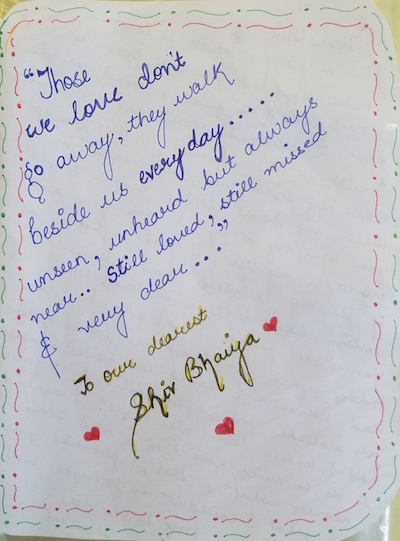 “Those
we love don't
go away, they walk
beside us everyday.....
unseen, unheard but always
near.. Still loved, still missed
& very dear...”
To our dearest
Shiv Bhaiya